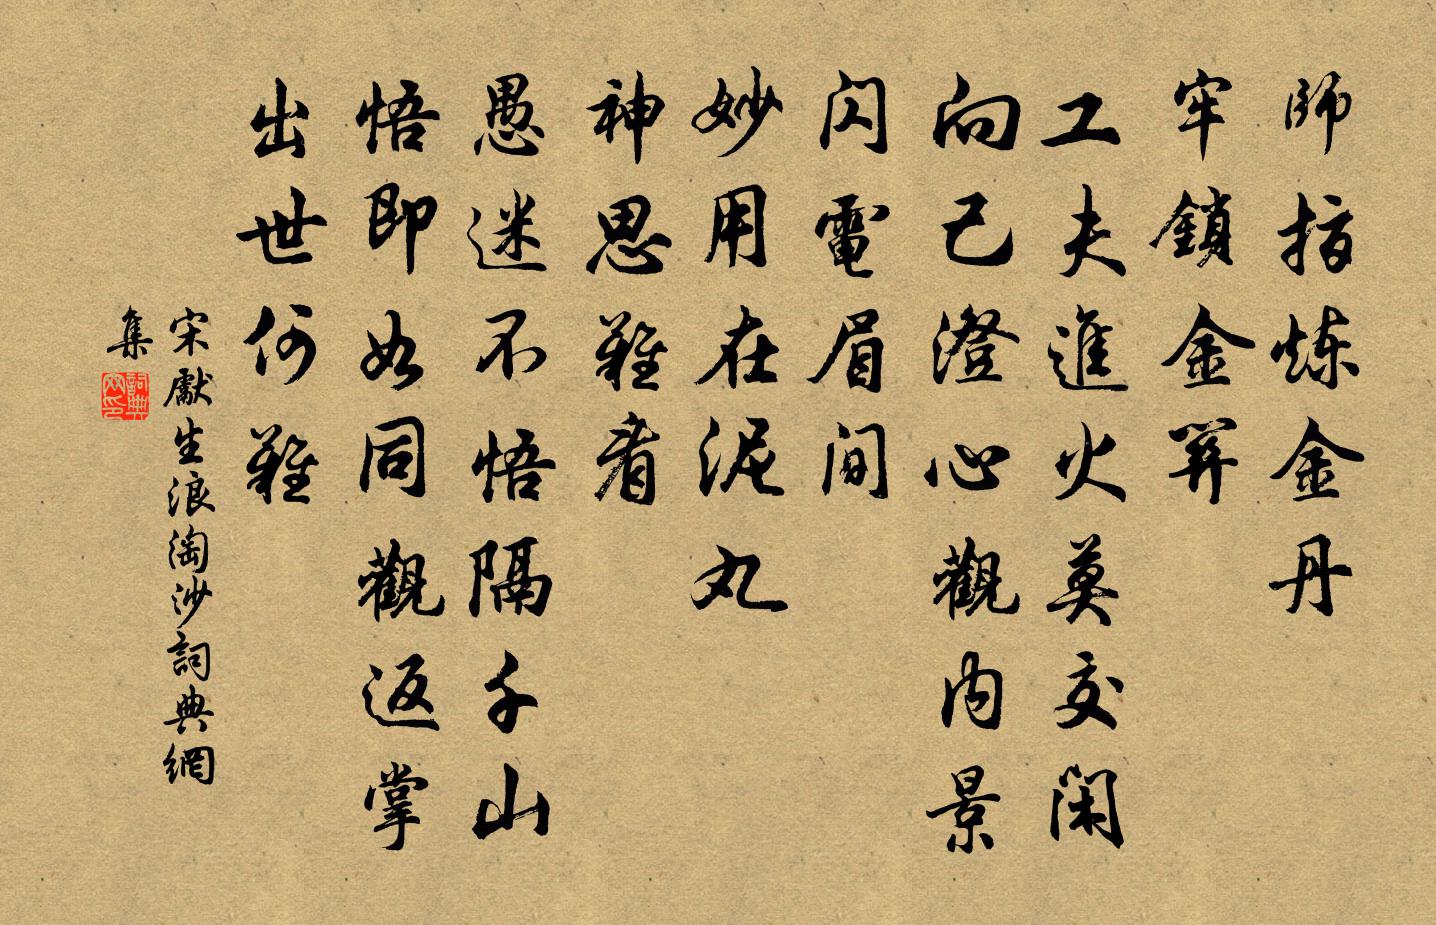 師指炼金丹
牢鎖金關
工夫進火莫交闲
向己澄心觀内景
闪電眉间
妙用在泥丸
神思難看
愚迷不悟隔千山
悟即如同觀返掌
出世何難
宋獻生浪淘沙詞典網
集
詞典网印